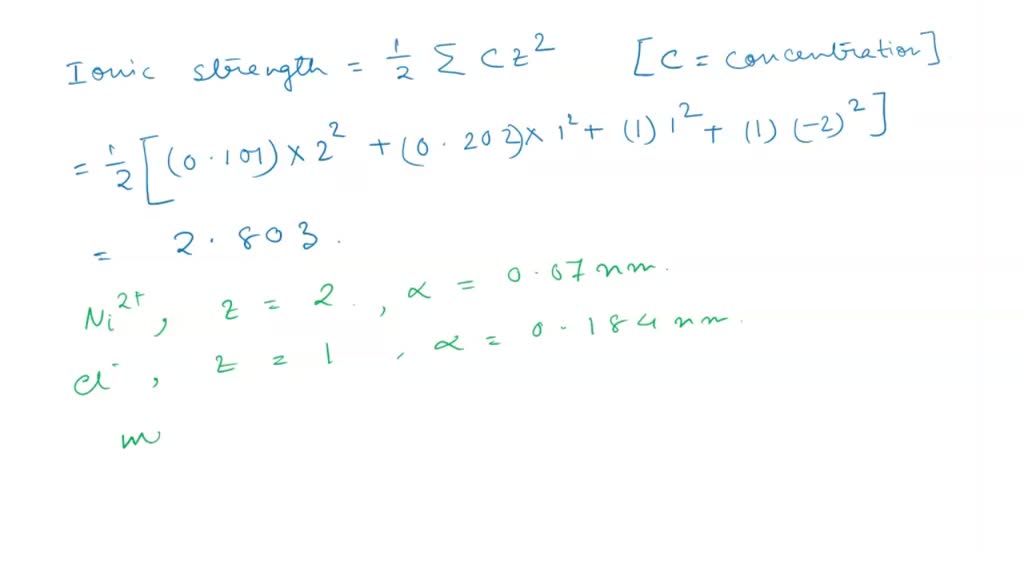 Ionic strength = 1/2 Σ Cz² [C = concentration]
= 1/2 [(0.101) × 2² + (0.202) × 1² + (1) 1² + (1) (-2)²]
= 2.803.
Ni²⁺, z = 2, α = 0.07 nm.
Cl⁻, z = 1, α = 0.184 nm.
m